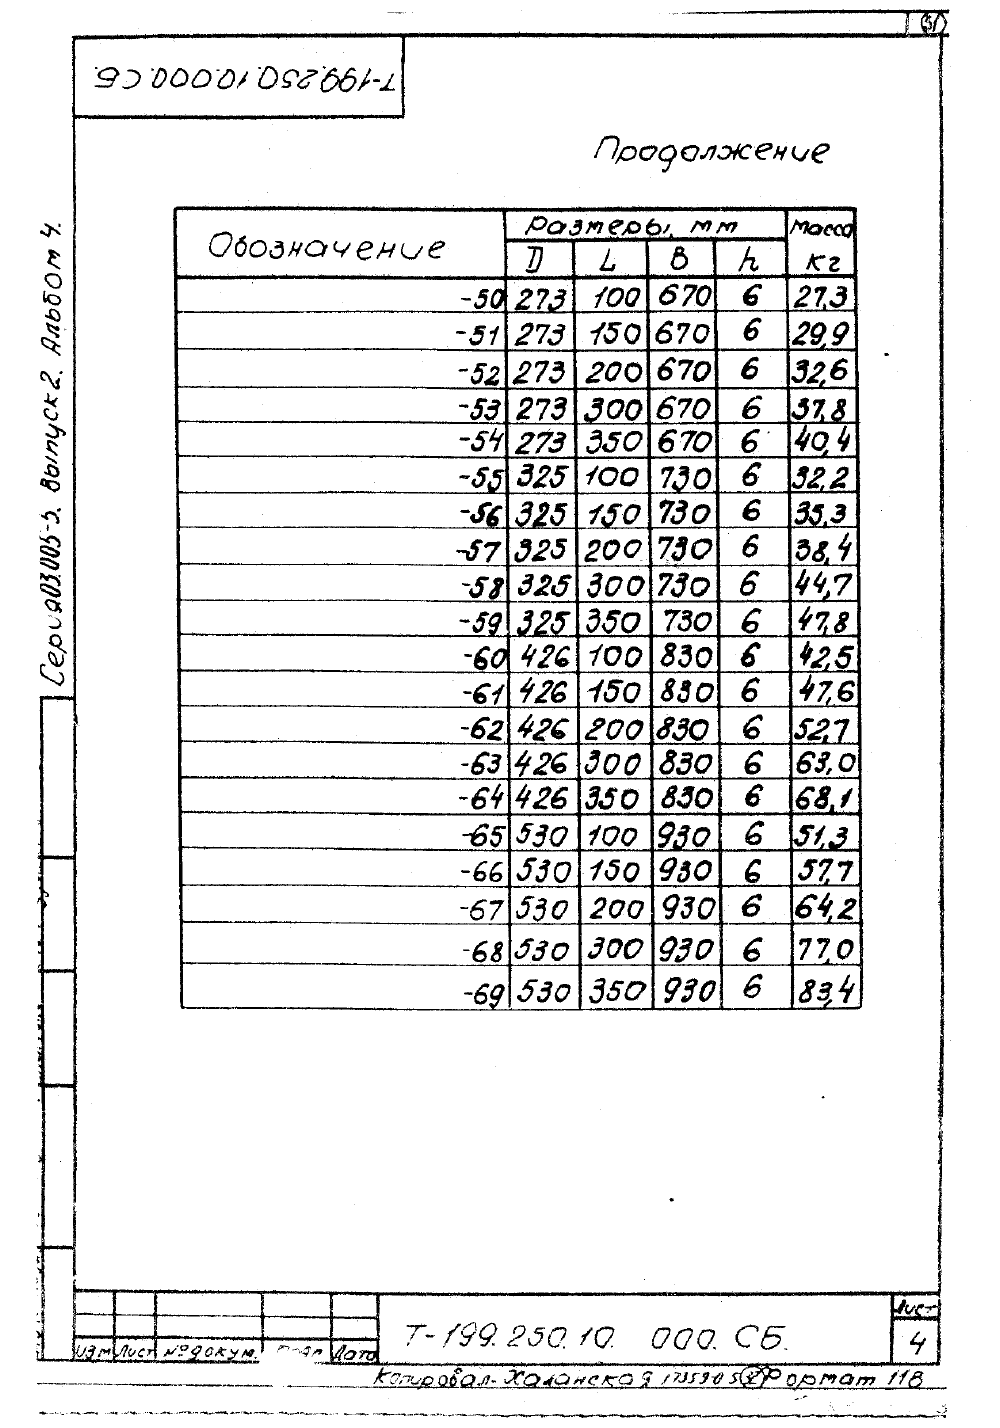 Т-199.250.10.000.СБ
Продолжение
Обозначение Размеры, мм Масса кг
D L B h
-50 273 100 670 6 27,3
-51 273 150 670 6 29,9
-52 273 200 670 6 32,6
-53 273 300 670 6 37,8
-54 273 350 670 6 40,4
-55 325 100 730 6 32,2
-56 325 150 730 6 35,3
-57 325 200 730 6 38,4
-58 325 300 730 6 44,7
-59 325 350 730 6 47,8
-60 426 100 830 6 42,5
-61 426 150 830 6 47,6
-62 426 200 830 6 52,7
-63 426 300 830 6 63,0
-64 426 350 830 6 68,1
-65 530 100 930 6 51,3
-66 530 150 930 6 57,7
-67 530 200 930 6 64,2
-68 530 300 930 6 77,0
-69 530 350 930 6 83,4
Серия 03.005-5. Выпуск 2. Альбом 4.
Изм Лист № докум. Подп Дата
Т-199.250.10. 000. СБ.
Лист
4
Копировал- Формат 11В